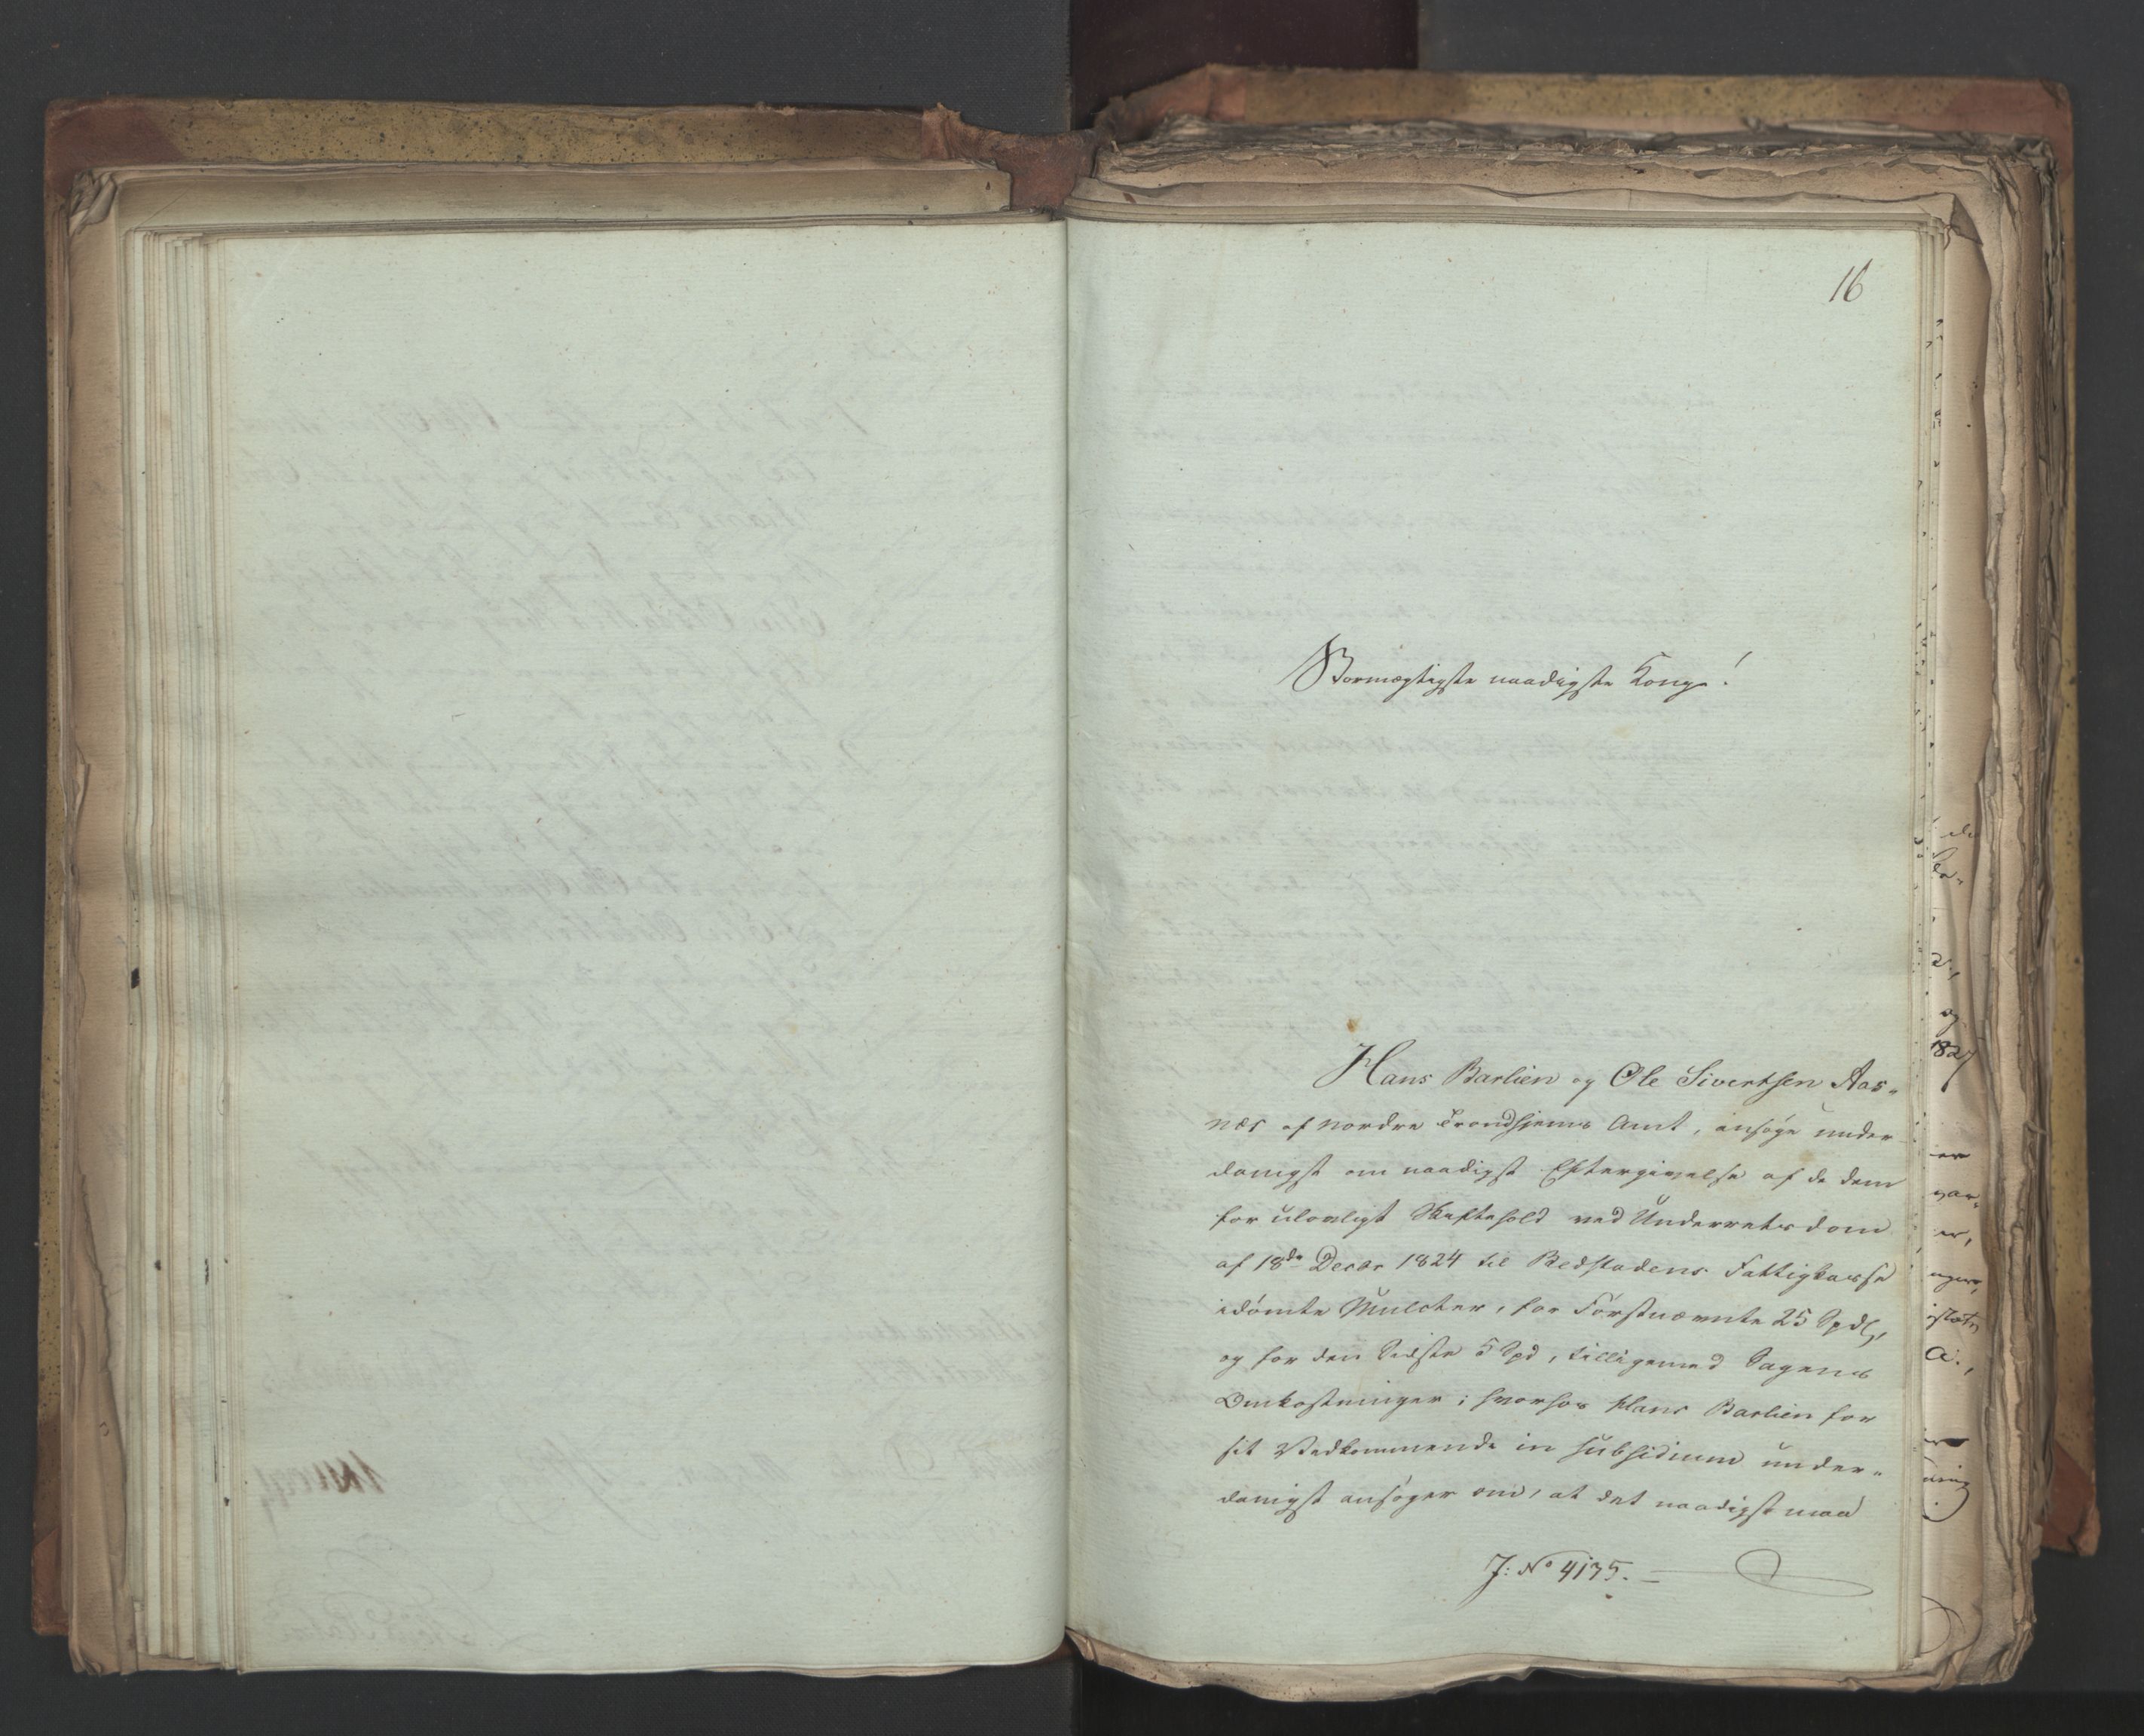 16
Stormægtigste naadigste Konge!
Hans Barlien og Ole Sivertsen Aas-
næs af Nordre Trondhjems Amt, ansøge under-
danigst om naadigst Eftergivelse af de dem
for ulovligt Skiftehold ved Underretsdom
af 18de Decbr 1824 til Bedstadens Fattigkasse
idømte Mulcter, for Førstnævnte 25 Spdlr,
og for den Sidste 5 Spd, tilligemed Sagens
Omkostninger; hvorhos Hans Barlien for
sit Vedkommende in subsidium under-
danigst ansøger om, at det naadigst maa
J: No 4135.
1827